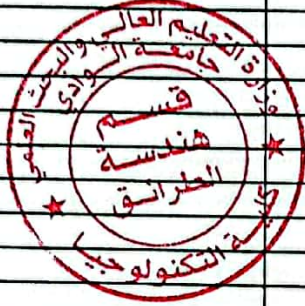 وزارة التعليم العالي والبحث العلمي
جامعة الوادي
قسم
هندسة
الطرائق
كلية التكنولوجيا